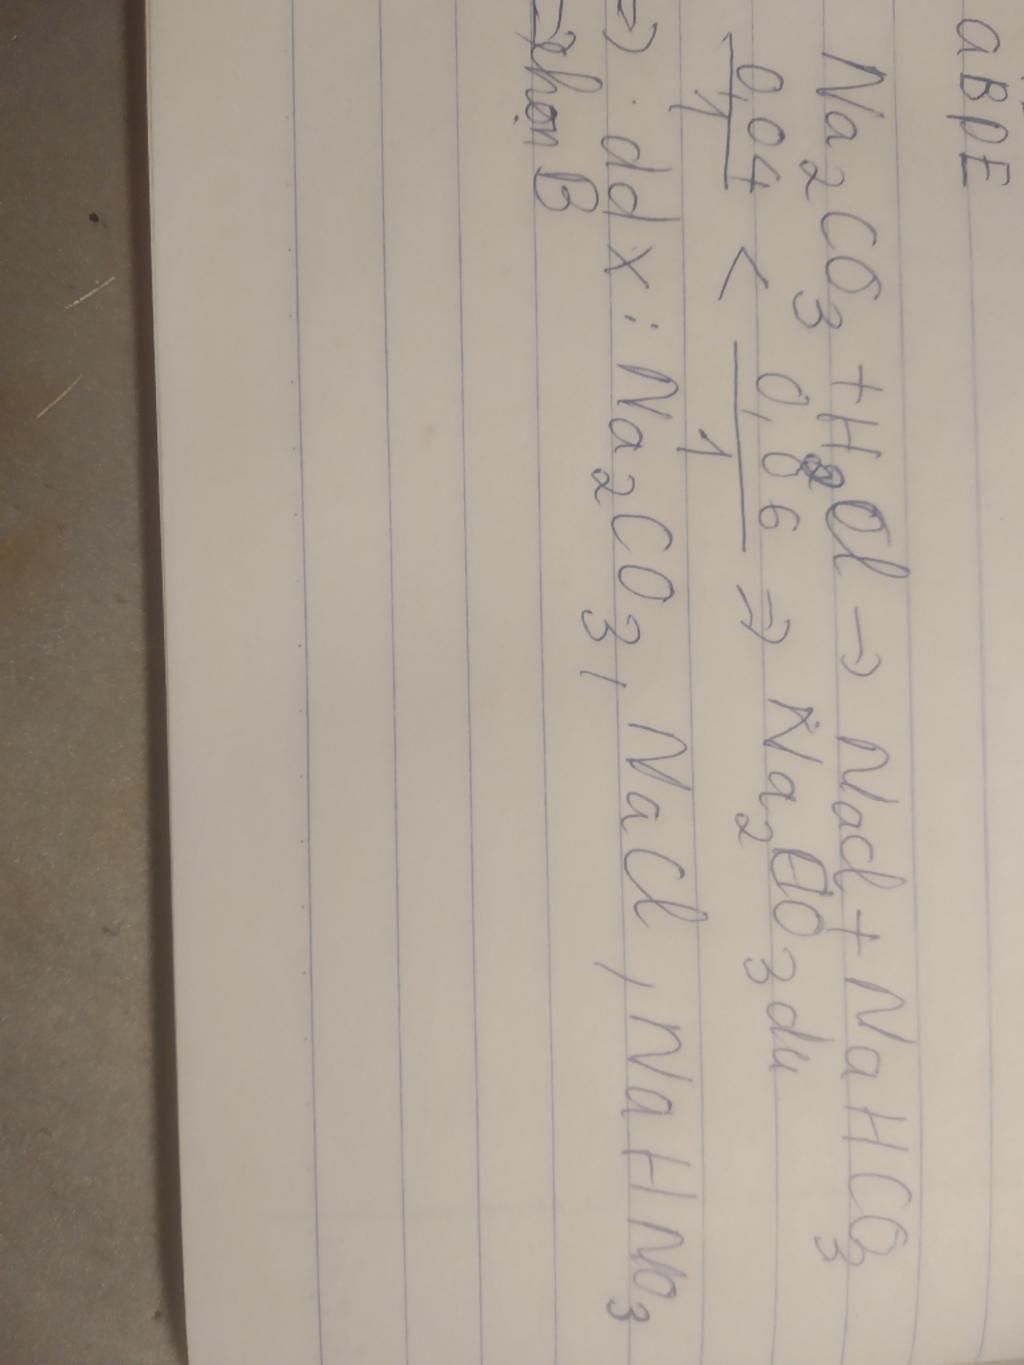 aBDE
Na2CO3 + HCl → NaCl + NaHCO3
0,04/1 < 0,06/1 ⇒ Na2CO3 dư
⇒ ddX: Na2CO3, NaCl, NaHNO3
→ chọn B